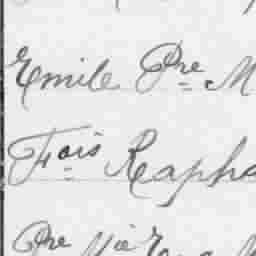 Emile Pre M
Fois Rapha
Pre Mie